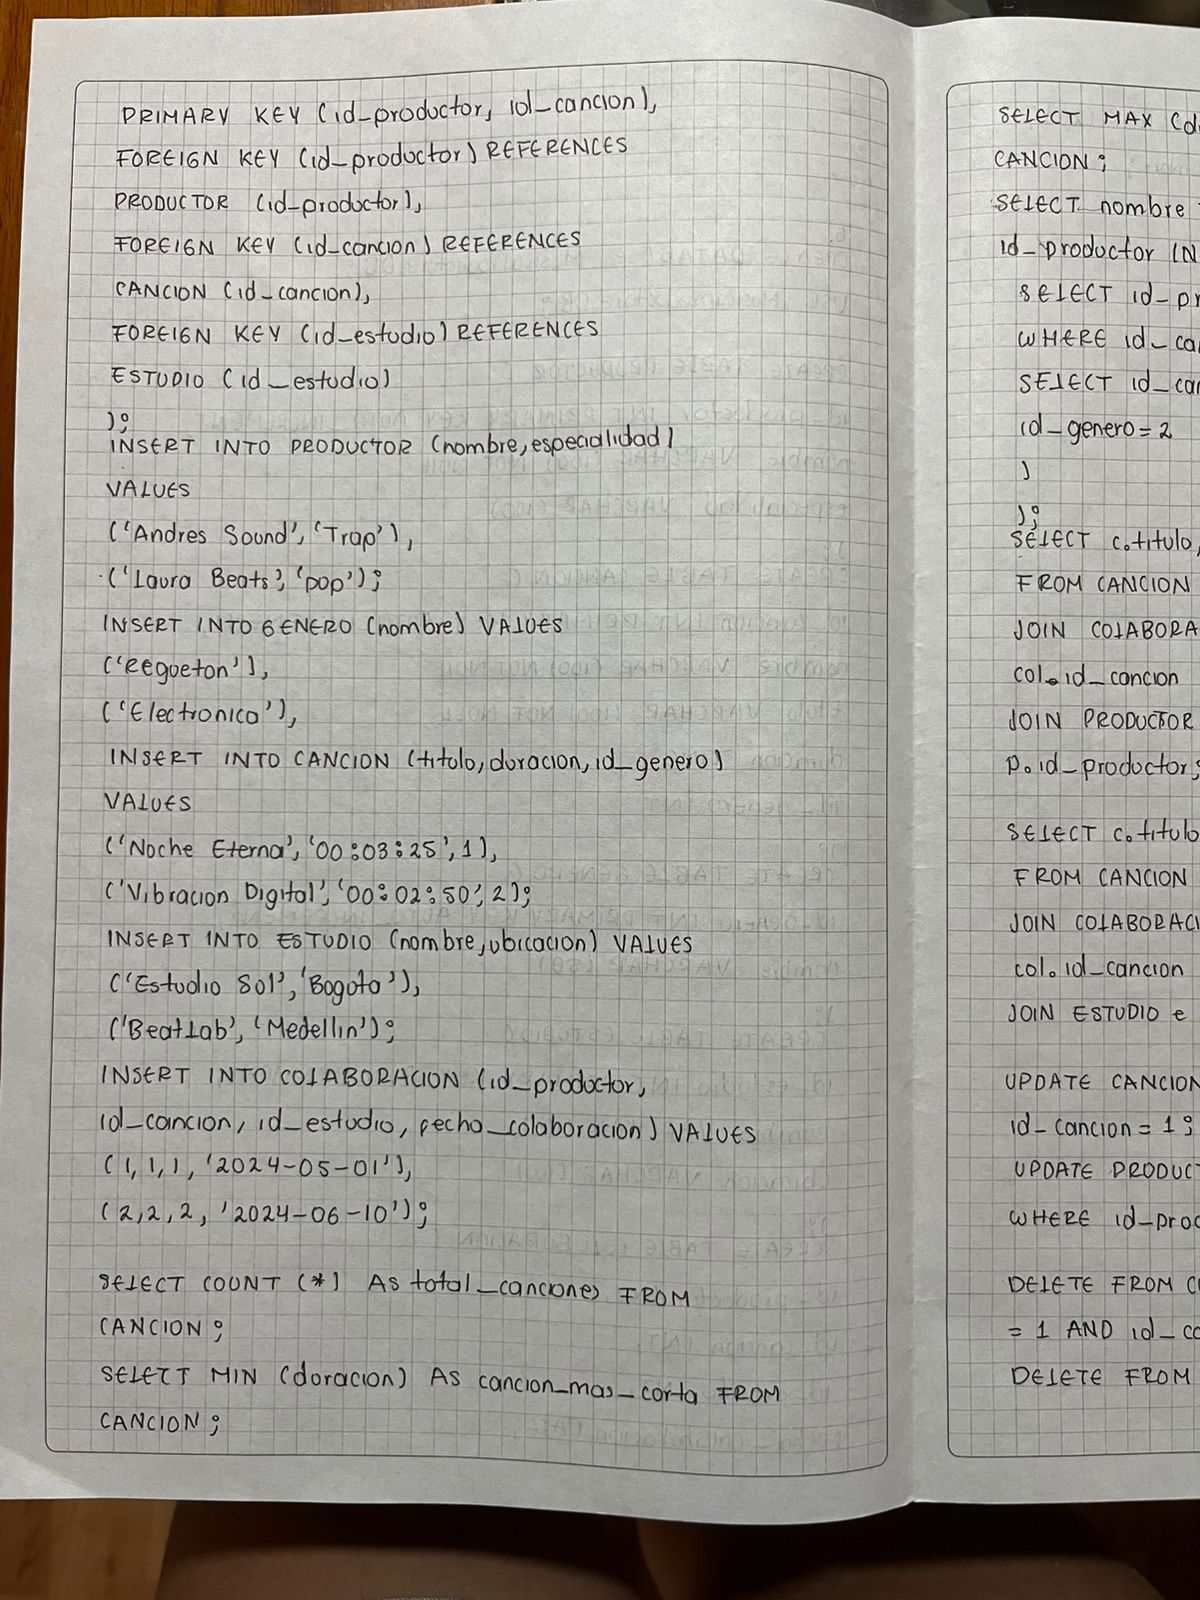 PRIMARY KEY (id_productor, id_cancion),
FOREIGN KEY (id_productor) REFERENCES
PRODUCTOR (id_productor),
FOREIGN KEY (id_cancion) REFERENCES
CANCION (id_cancion),
FOREIGN KEY (id_estudio) REFERENCES
ESTUDIO (id_estudio)
);
INSERT INTO PRODUCTOR (nombre, especialidad)
VALUES
('Andres Sound', 'Trap'),
('Laura Beats', 'pop');
INSERT INTO GENERO (nombre) VALUES
('Regueton'),
('Electronica'),
INSERT INTO CANCION (titulo, duracion, id_genero)
VALUES
('Noche Eterna', '00:03:25', 1),
('Vibracion Digital', '00:02:50', 2);
INSERT INTO ESTUDIO (nombre, ubicacion) VALUES
('Estudio Sol', 'Bogota'),
('BeatLab', 'Medellin');
INSERT INTO COLABORACION (id_productor,
id_cancion, id_estudio, fecha_colaboracion) VALUES
(1, 1, 1, '2024-05-01'),
(2, 2, 2, '2024-06-10');
SELECT COUNT (*) As total_canciones FROM
CANCION;
SELECT MIN (doracion) As cancion_mas_corta FROM
CANCION;
SELECT MAX (d
CANCION;
SELECT nombre
id_productor IN
SELECT id_pr
WHERE id_ca
SELECT id_ca
id_genero = 2
)
);
SELECT c.titulo,
FROM CANCION
JOIN COLABORA
col.id_cancion
JOIN PRODUCTOR
p.id_productor;
SELECT c.titulo
FROM CANCION
JOIN COLABORACI
col.id_cancion
JOIN ESTUDIO e
UPDATE CANCION
id_cancion = 1;
UPDATE PRODUCT
WHERE id_prod
DELETE FROM CO
= 1 AND id_ca
DELETE FROM